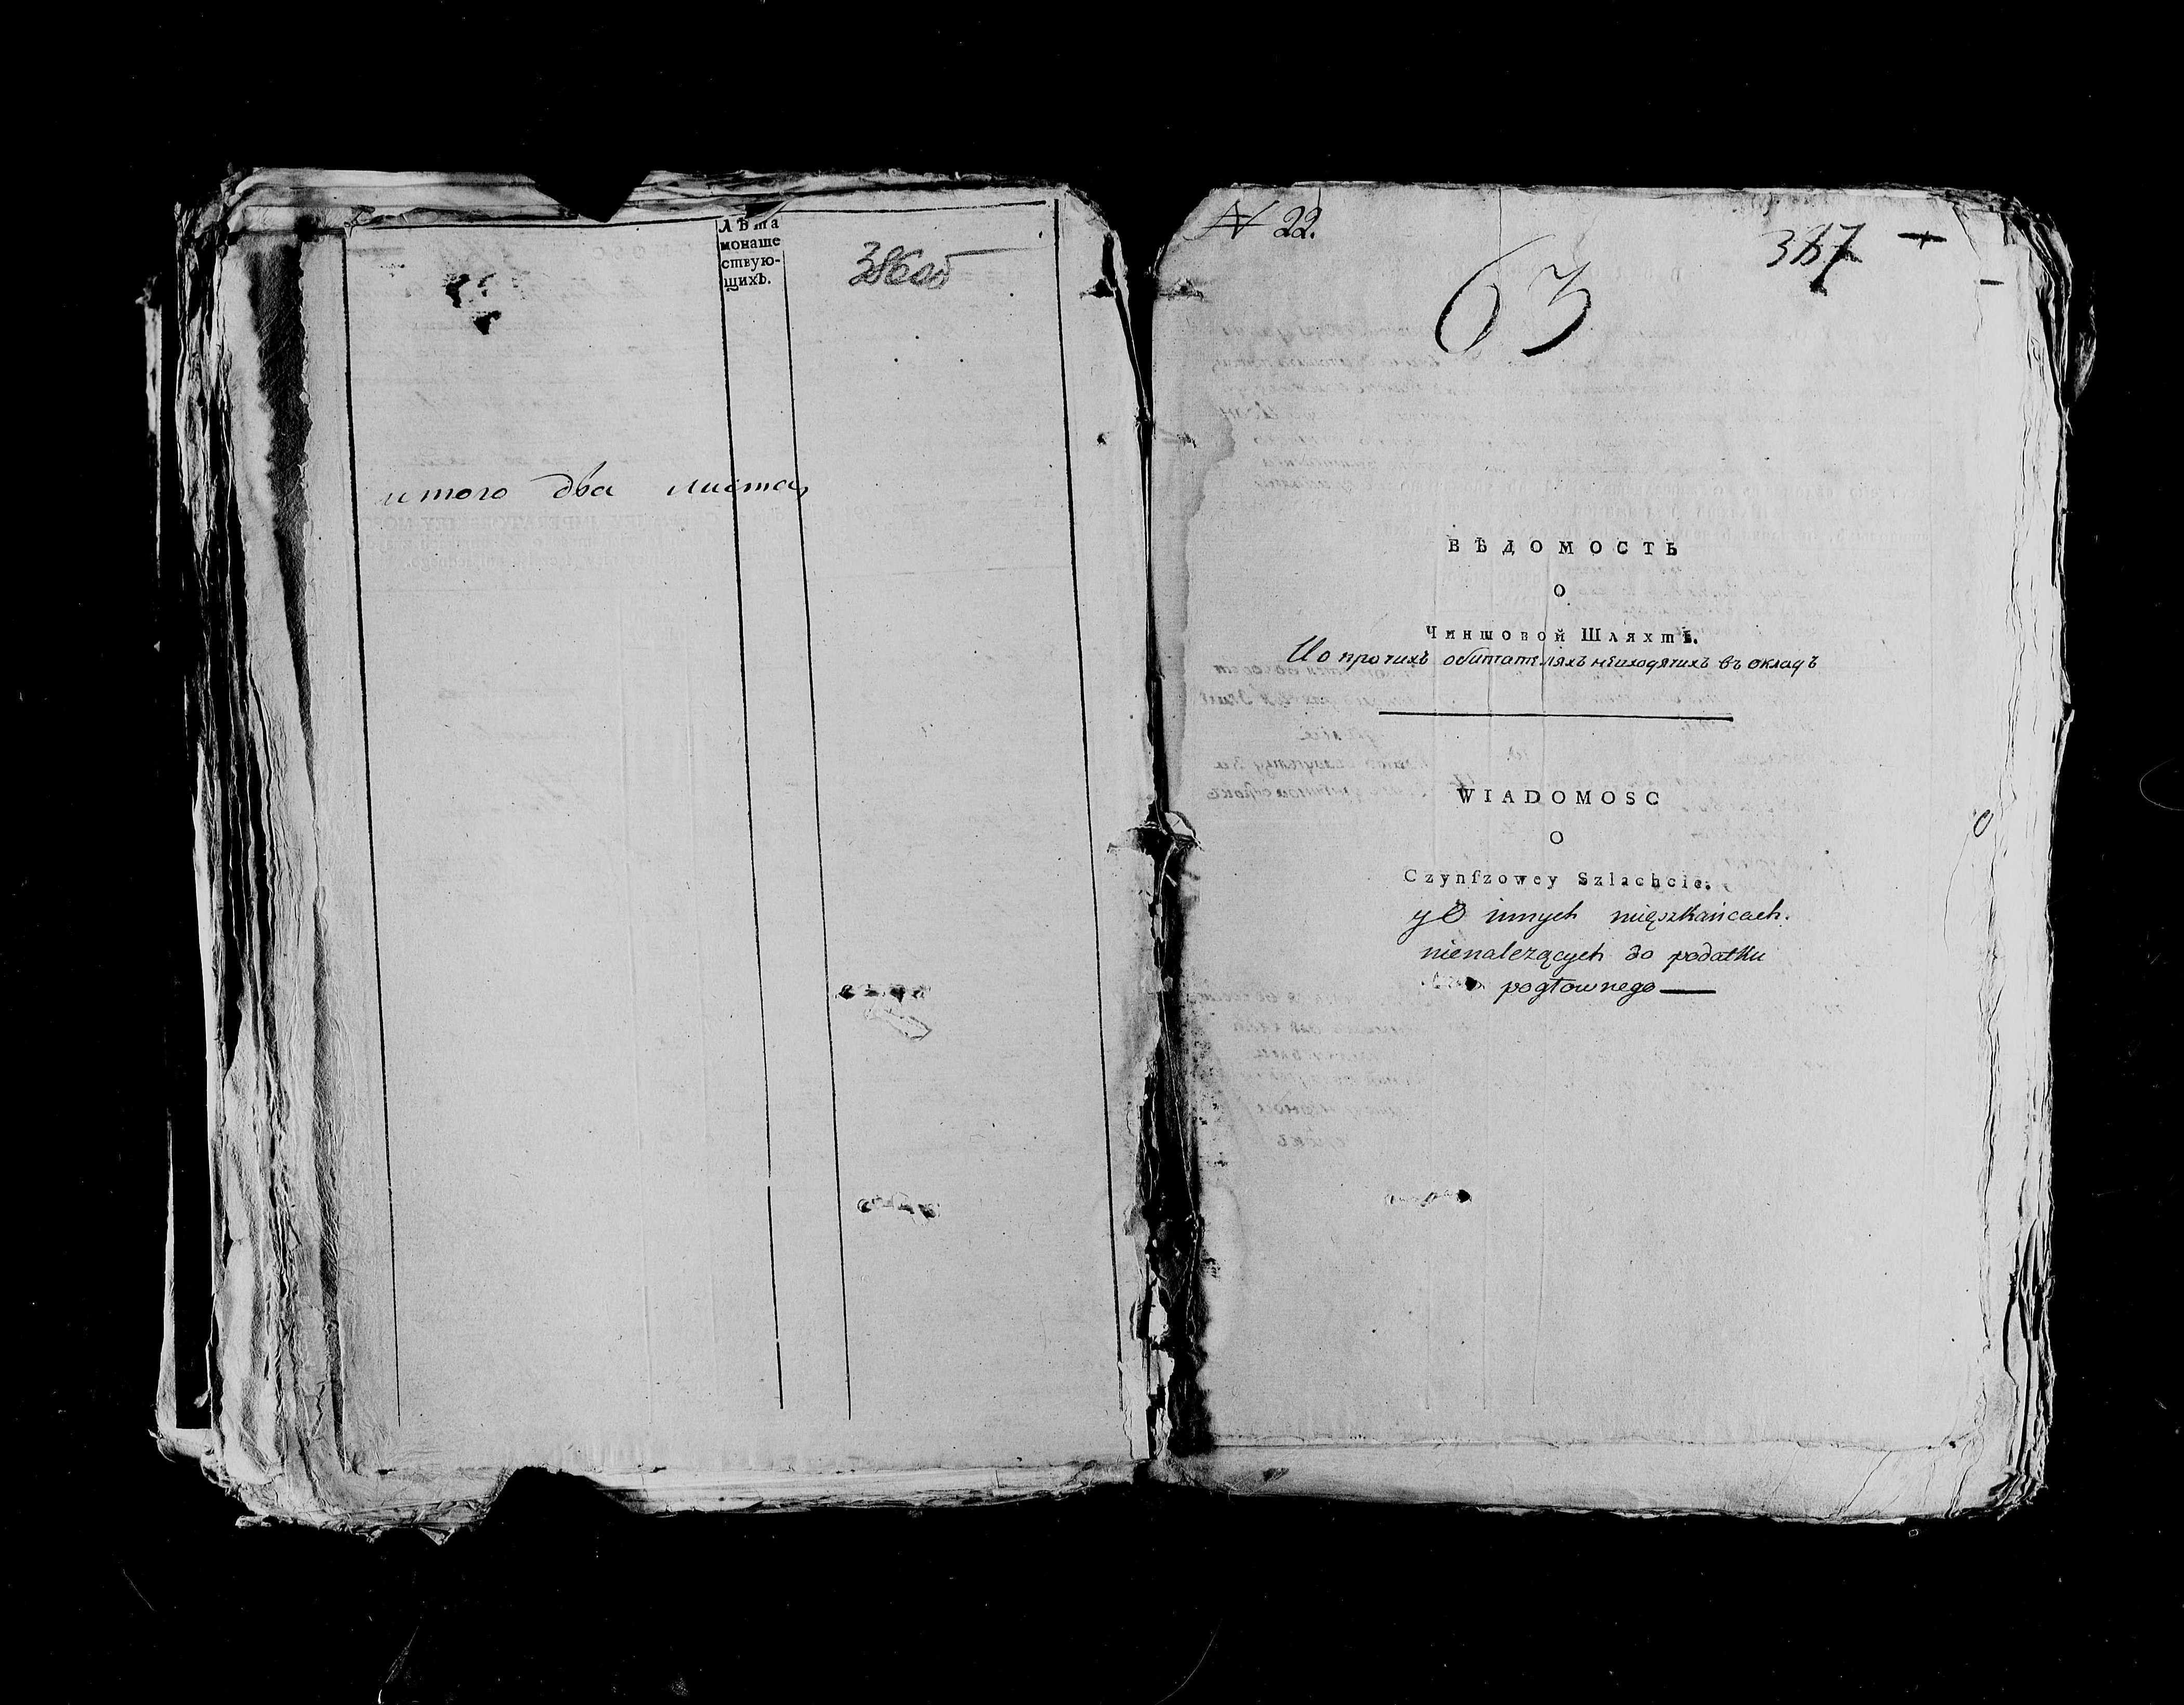 Лѣта
монаше
ствую-
щихъ.
386об
итого два листа
№ 22.
387
63
ВѢДОМОСТЬ
О
Чиншовой Шляхтѣ.
И о протихъ обитателяхъ нѣиходятихъ въ окладъ
WIADOMOSC
O
Czynſzowey Szlachcie.
y O innych mięszkańcach.
nienalezących do podatku
pogłownego